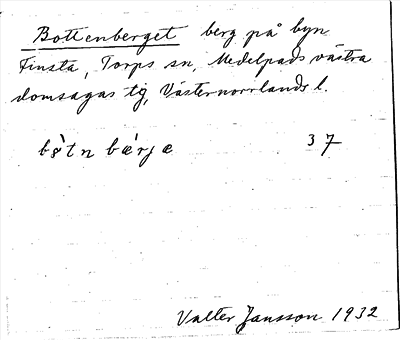 Bottenberget berg på byn
Finsta, Torps sn, Medelpads västra
domsagas tg, Västernorrlands l.
bo᷄̀tn bæ̀rjæ 37
Valter Jansson 1932